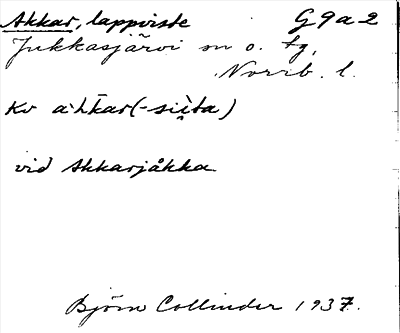 Akkar, lappviste G 9 a 2
Jukkasjärvi sn o. tg,
Norrb. l.
Kv a·hkar(-siita)
vid Akkarjåkka
Björn Collinder 1937.